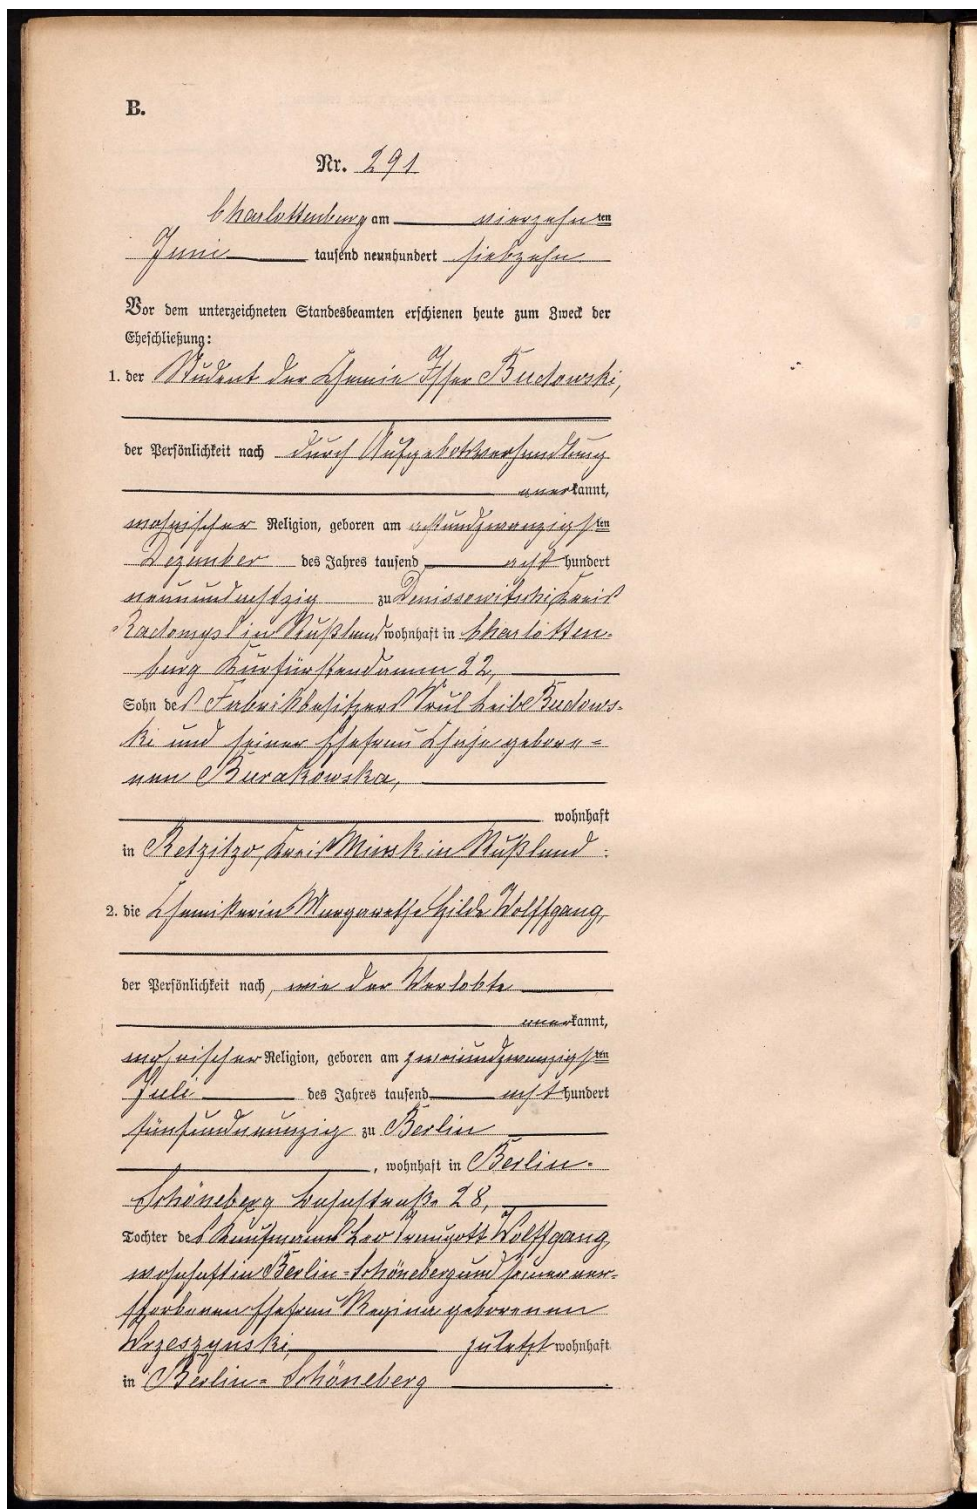 B.
Nr. 291
Charlottenburg am vierzehn ten
Juni tausend neunhundert siebzehn
Vor dem unterzeichneten Standesbeamten erschienen heute zum Zweck der
Eheschließung:
1. der Student der Chemie Isser Budowski,
der Persönlichkeit nach durch Aufgebotsverhandlung
anerkannt,
mosaischer Religion, geboren am achtundzwanzigsten
Dezember des Jahres tausend acht hundert
neunundachtzig zu Denissowitschi Kreis
Radomysl in Rußland wohnhaft in Charlotten-
burg Kurfürstendamm 22,
Sohn des Fabrikbesitzers Srul Leib Budows-
ki und seiner Ehefrau Chaje gebore-
nen Burakowska,
wohnhaft
in Retzitzo, Kreis Minsk in Rußland.
2. die Chemikerin Margarethe Hilde Wolffgang,
der Persönlichkeit nach, wie der Verlobte
anerkannt,
mosaischer Religion, geboren am zweiundzwanzigsten
Juli des Jahres tausend acht hundert
fünfundneunzig zu Berlin
, wohnhaft in Berlin-
Schöneberg Bahnstraße 28,
Tochter des Kaufmanns Leo Traugott Wolffgang,
wohnhaft in Berlin-Schöneberg und seiner ver-
storbenen Ehefrau Regina geborenen
Wrzeszynski, zuletzt wohnhaft
in Berlin-Schöneberg.